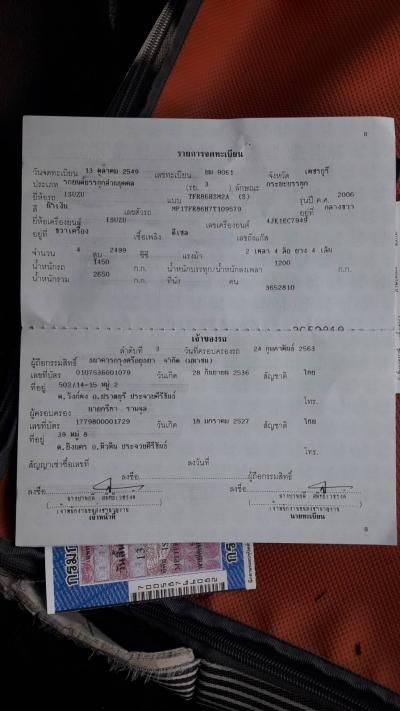 8
รายการจดทะเบียน
วันจดทะเบียน 13 ตุลาคม 2549 เลขทะเบียน บม 9051 จังหวัด เพชรบุรี
ประเภท รถยนต์บรรทุกส่วนบุคคล (รย. 3 ) ลักษณะ กระบะบรรทุก
ยี่ห้อรถ ISUZU แบบ TFR86HSM2A (S) รุ่นปี ค.ศ. 2006
สี เลขตัวรถ MP1TFR86H7T109579 อยู่ที่ กลางขวา
ยี่ห้อเครื่องยนต์ ISUZU เลขเครื่องยนต์ 4JK1EC7949
อยู่ที่ ขวาเครื่อง เชื้อเพลิง ดีเซล เลขถังแก๊ส
จำนวน 4 สูบ 2499 ซีซี แรงม้า 2 เพลา 4 ล้อ ยาง 4 เส้น
น้ำหนักรถ 1450 ก.ก. น้ำหนักบรรทุก/น้ำหนักลงเพลา 1200 ก.ก.
น้ำหนักรวม 2650 ก.ก. ที่นั่ง คน 3652810
3652810
เจ้าของรถ
ลำดับที่ 3 วันที่ครอบครองรถ 24 กุมภาพันธ์ 2563
ผู้ถือกรรมสิทธิ์ ธนาคารกรุงศรีอยุธยา จำกัด (มหาชน)
เลขที่บัตร 0107536001079 วันเกิด 28 กันยายน 2536 สัญชาติ ไทย
ที่อยู่ 502/14-15 หมู่ 2
ต.วังก์พง อ.ปราณบุรี ประจวบคีรีขันธ์ โทร.
ผู้ครอบครอง นายกรีฑา
เลขที่บัตร 1779800001729 วันเกิด 18 มกราคม 2527 สัญชาติ ไทย
ที่อยู่ 39 หมู่ 8
ต. อ.หัวหิน ประจวบคีรีขันธ์ โทร.
สัญญาเช่าซื้อเลขที่ ลงวันที่
ลงชื่อ ผู้ถือกรรมสิทธิ์
ลงชื่อ ลงชื่อ
เจ้าหน้าที่ นายทะเบียน
8
70056744062